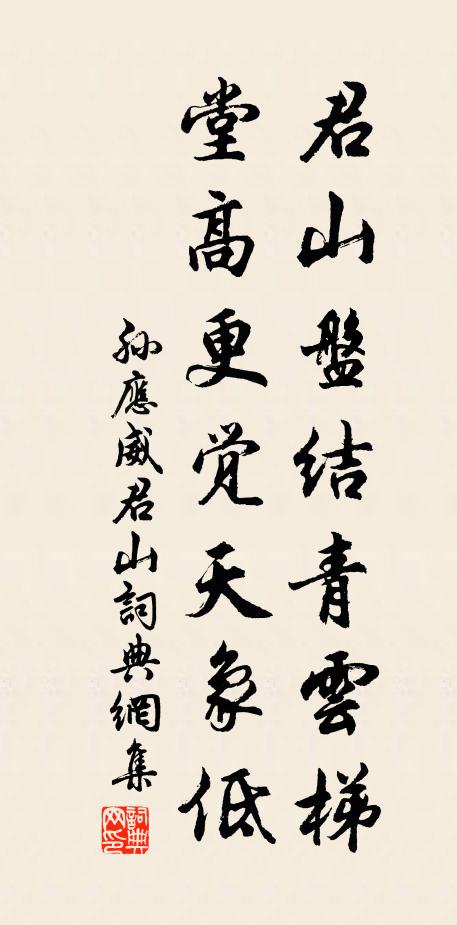 君山盤结青雲梯
堂高更觉天象低
孙應威君山詞典網集
詞典
网印